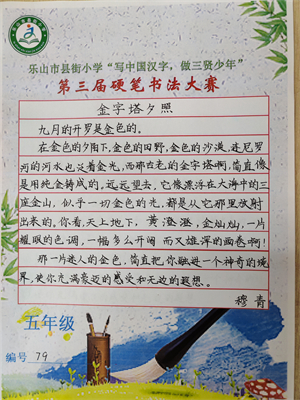 乐山市县街小学“写中国汉字，做三贤少年”
第三届硬笔书法大赛
金字塔夕照
九月的开罗是金色的。
在金色的夕阳下，金色的田野，金色的沙漠，连尼罗
河的河水也泛着金光，而那古老的金字塔啊，简直像
是用纯金铸成的。远远望去，它像漂浮在大海中的三
座金山，似乎一切金色的光，都是从它那里放射
出来的。你看，天上地下，黄澄澄，金灿灿，一片
耀眼的色调，一幅多么开阔而又雄浑的画卷啊！
那一片迷人的金色，简直要把你融进一个神奇的境
界，使你充满豪迈的感受和无边的遐想。
穆青
五年级
编号 79